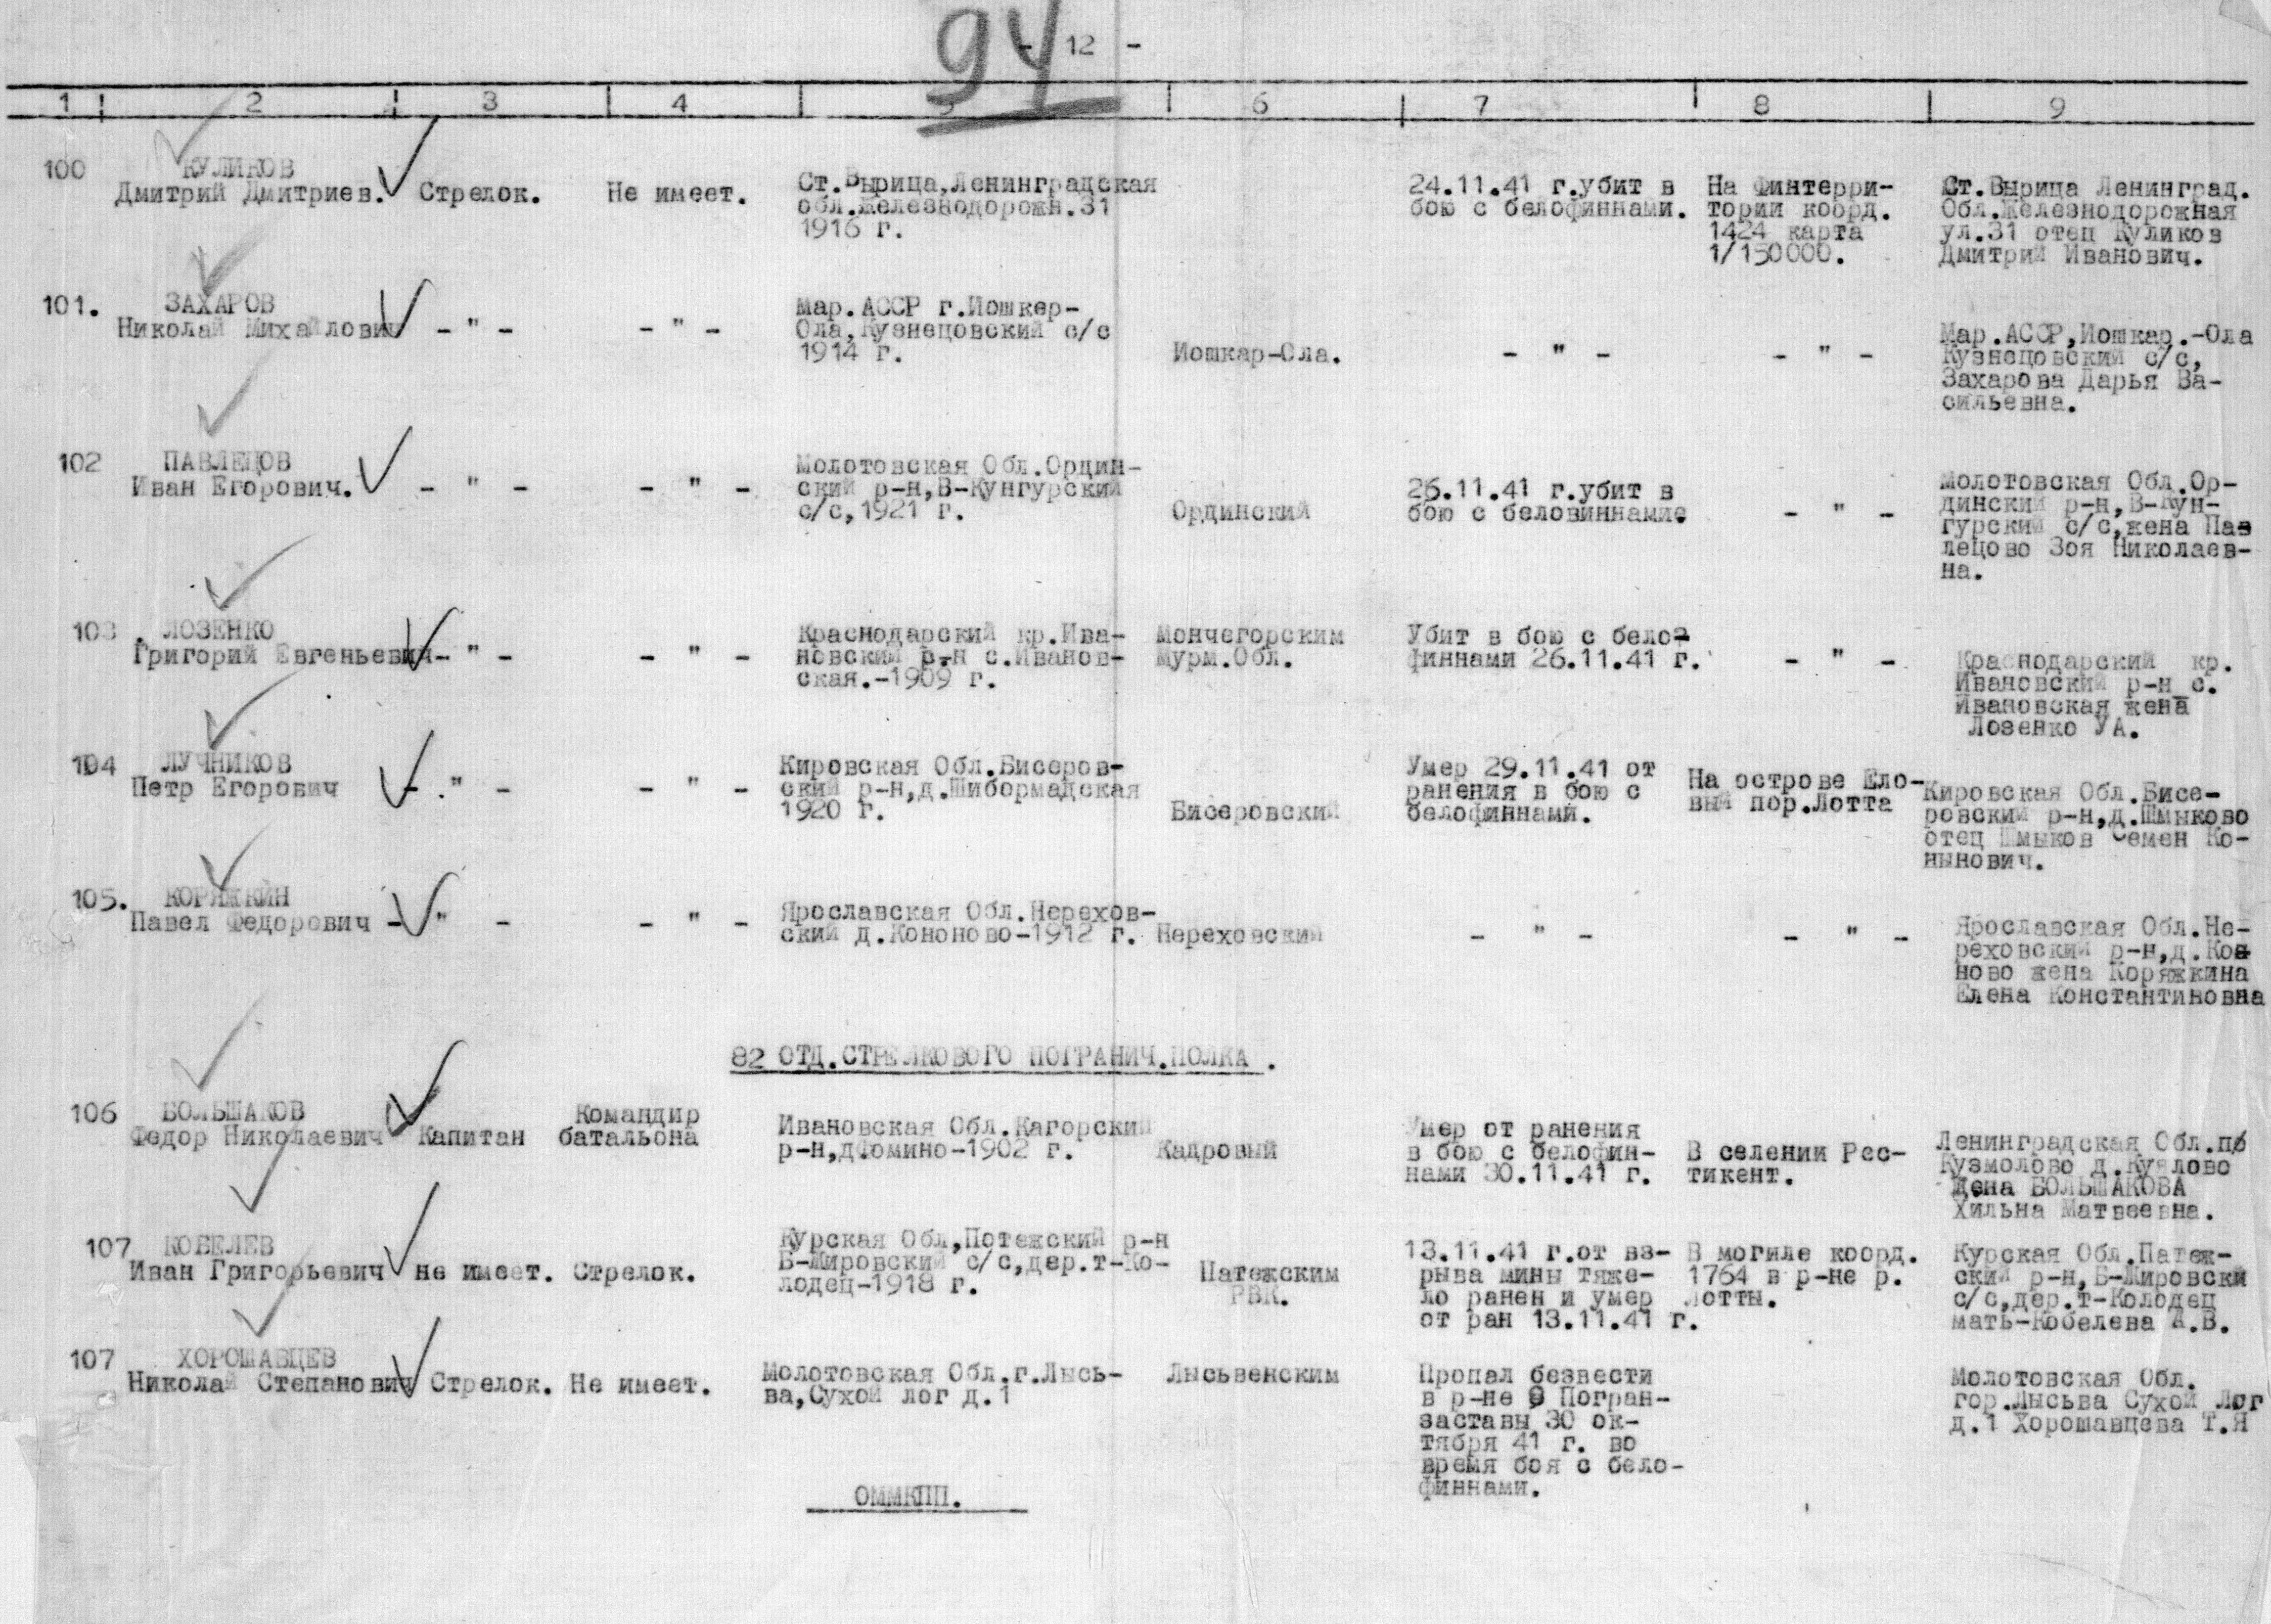 94
- 12 -
1 2 3 4 5 6 7 8 9
100
КУЛИКОВ
Дмитрий Дмитриев.
Стрелок.
Не имеет.
Ст.Вырица,Ленинградская
обл.Железнодорожн.31
1916 г.
24.11.41 г.убит в
бою с белофиннами.
На Финтерри-
тории коорд.
1424 карта
1/150000.
Ст.Вырица Ленинград.
Обл.Железнодорожная
ул.31 отец Куликов
Дмитрий Иванович.
101.
ЗАХАРОВ
Николай Михайлович
- " -
- " -
Мар.АССР г.Иошкер-
Ола,Кузнецовский с/с
1914 г.
Иошкар-Ола.
- " -
- " -
Мар.АССР,Иошкар.-Ола
Кузнецовский с/с,
Захарова Дарья Ва-
сильевна.
102
ПАВЛЕЦОВ
Иван Егорович.
- " -
- " -
Молотовская Обл.Ордин-
ский р-н,В-Кунгурский
с/с,1921 г.
Ординский
26.11.41 г.убит в
бою с беловиннамие
- " -
Молотовская Обл.Ор-
динский р-н,В-Кун-
гурский с/с,жена Пав
лецово Зоя Николаев-
на.
103
ЛОЗЕНКО
Григорий Евгеньевич
- " -
- " -
Краснодарский кр.Ива-
новский р-н с.Иванов-
ская.-1909 г.
Мончегорским
Мурм.Обл.
Убит в бою с бело-
финнами 26.11.41 г.
- " -
Краснодарский кр.
Ивановский р-н с.
Ивановская жена
Лозенко УА.
104
ЛУЧНИКОВ
Петр Егорович
- " -
- " -
Кировская Обл.Бисеров-
ский р-н,д.Шибормадская
1920 г.
Бисеровский
Умер 29.11.41 от
ранения в бою с
белофиннами.
На острове Ело-
вый пор.Лотта
Кировская Обл.Бисе-
ровский р-н,д.Шмыково
отец Шмыков Семен Ко-
нынович.
105.
КОРЯЖКИН
Павел Федорович
- " -
- " -
Ярославская Обл.Нерехов-
ский д.Кононово-1912 г.
Нереховский
- " -
- " -
Ярославская Обл.Не-
реховский р-н,д.Кон
ново жена Коряжкина
Елена Константиновна
82 ОТД.СТРЕЛКОВОГО ПОГРАНИЧ.ПОЛКА .
106
БОЛЬШАКОВ
Федор Николаевич
Капитан
Командир
батальона
Ивановская Обл.Кагорский
р-н,дФомино-1902 г.
Кадровый
Умер от ранения
в бою с белофин-
нами 30.11.41 г.
В селении Рес-
тикент.
Ленинградская Обл.по
Кузмолово д.Куялово
Жена БОЛЬШАКОВА
Хильна Матвеевна.
107
КОБЕЛЕВ
Иван Григорьевич
не имеет.
Стрелок.
Курская Обл,Потежский р-н
Б-Жировский с/с,дер.т-Ко-
лодец-1918 г.
Патежским
РВК.
13.11.41 г.от вз-
рыва мины тяже-
ло ранен и умер
от ран 13.11.41 г.
В могиле коорд.
1764 в р-не р.
Лотты.
Курская Обл.Патеж-
ский р-н,Б-Жировски
с/с,дер.т-Колодец
мать-Кобелева А.В.
107
ХОРОШАВЦЕВ
Николай Степанович
Стрелок.
Не имеет.
Молотовская Обл.г.Лысь-
ва,Сухой лог д.1
Лысьвенским
Пропал безвести
в р-не 9 Погран-
заставы 30 ок-
тября 41 г. во
время боя с бело-
финнами.
Молотовская Обл.
гор.Лысьва Сухой Лог
д.1 Хорошавцева Т.Я
ОММКПП.